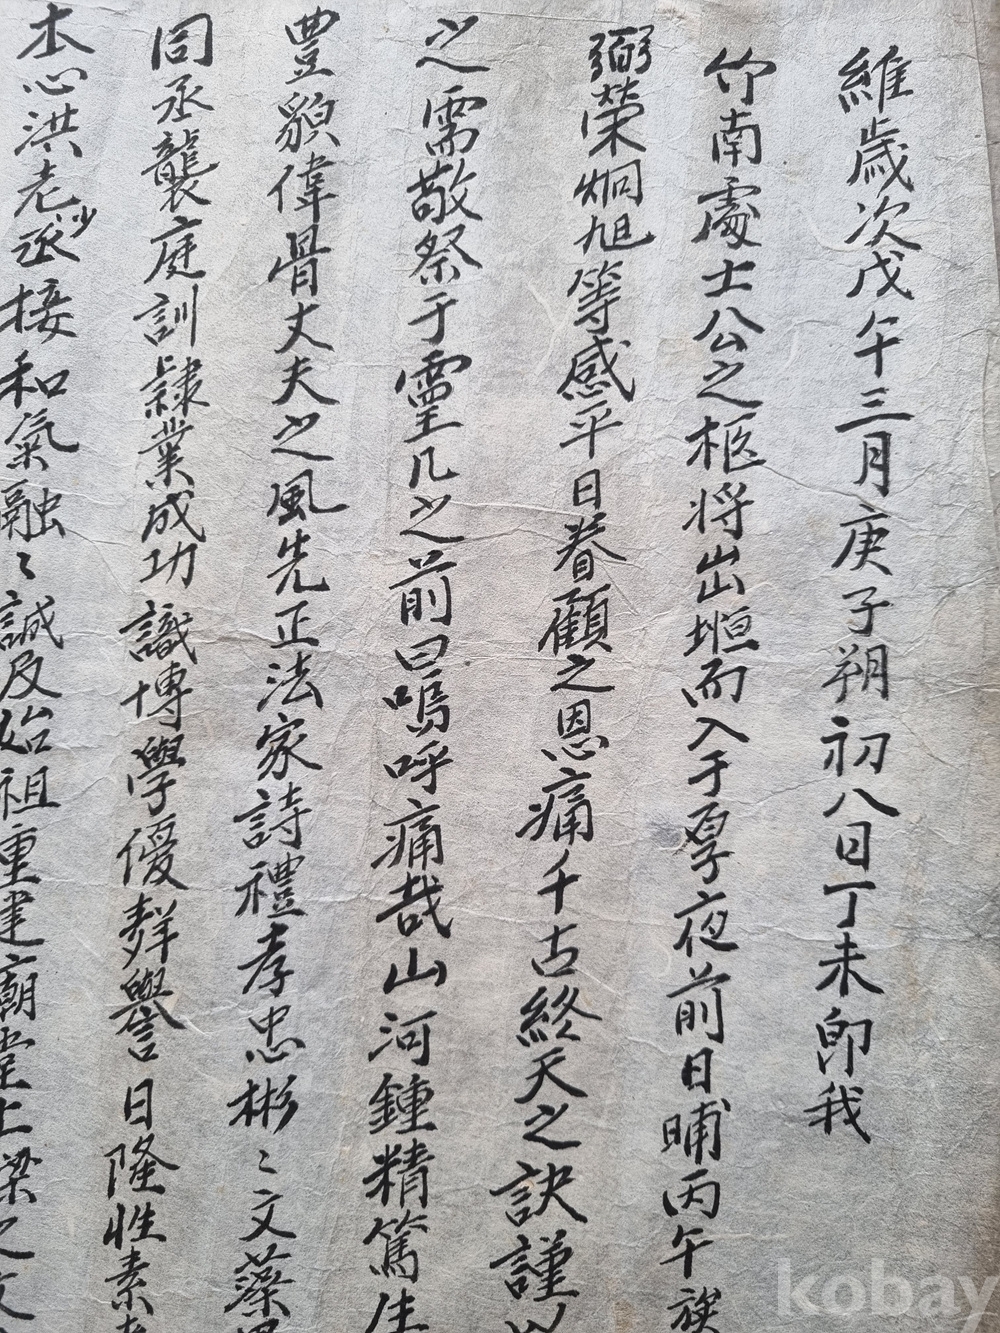 維歲次戊午三月庚子朔初八日丁未卽我
竹南處士公之柩將出堩而入于厚夜前日晡丙午族
弼榮炯旭等感平日眷顧之恩痛千古終天之訣謹以
之需敬祭于靈几之前曰嗚呼痛哉山河鍾精篤生
豊貌偉骨丈夫之風先正法家詩禮孝忠彬〻文藻
同丞襲庭訓隷業成功識博學優群譽日隆性素
本心洪老少丞接和氣融〻誠及始祖重建廟堂上梁之文
kobay